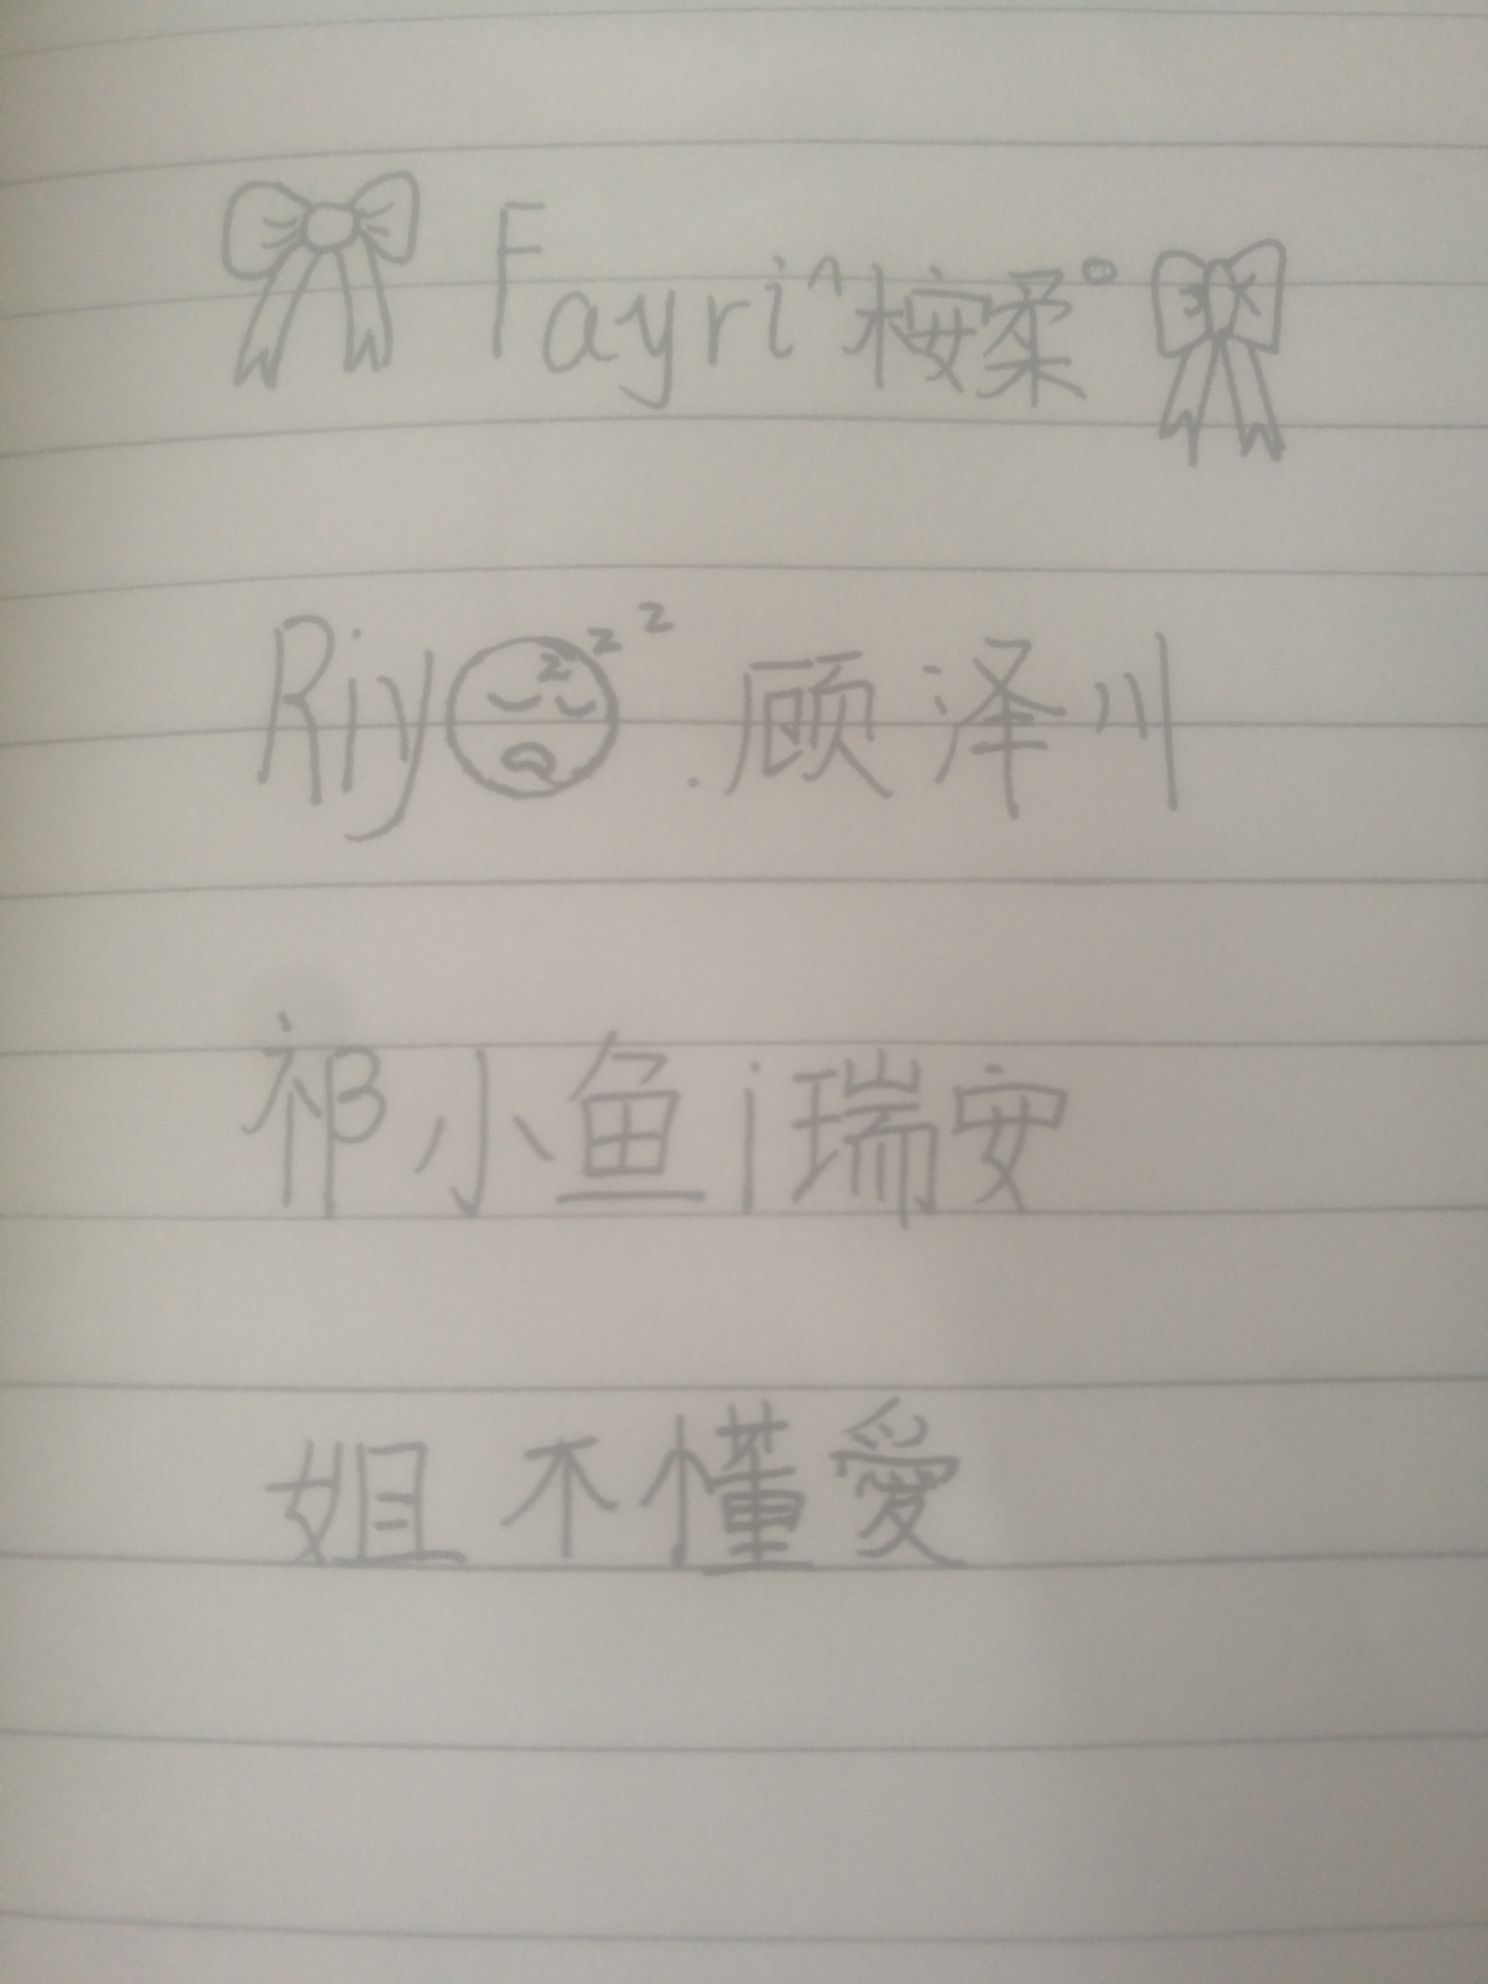 Fayri^桉柔°
Riyzzz.顾泽川
祁小鱼i瑞安
姐不懂爱